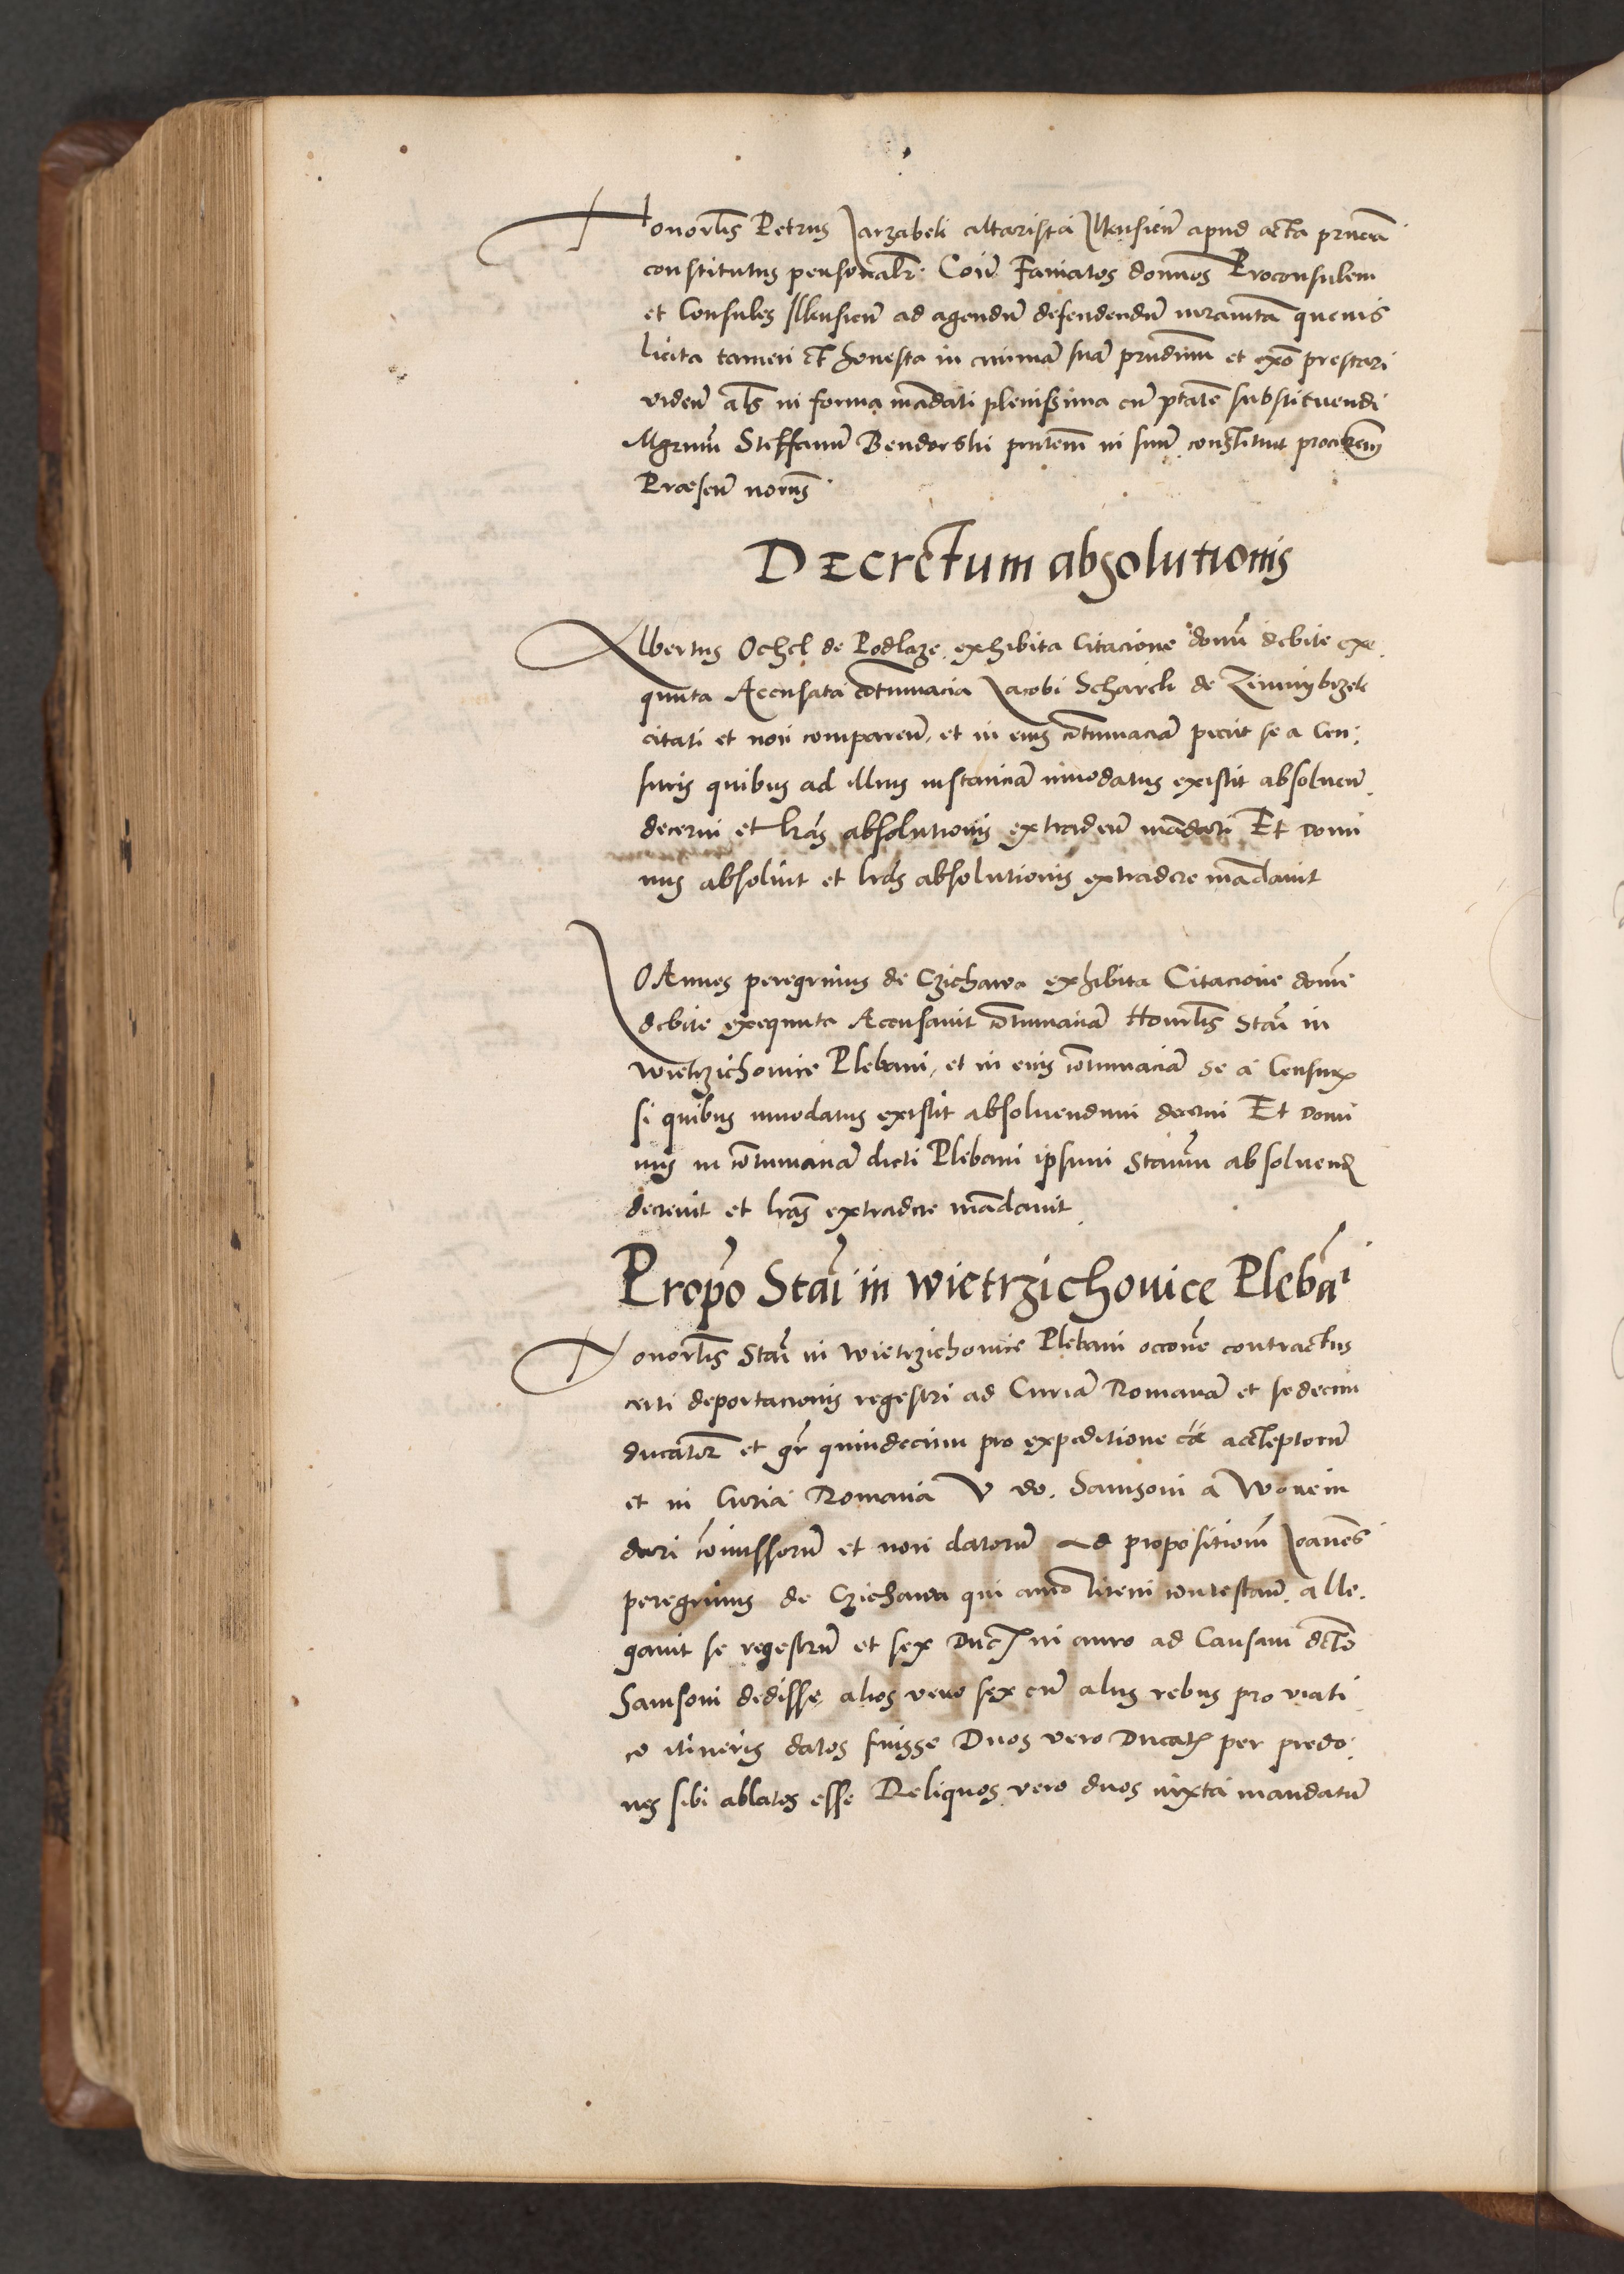 Honorlis Petrus Jarzabeli altarista Illkusien apud acta pnciā
constitutus personalr. Coiū Famatos domos Proconsulem
et Consules Illkusien ad agendū defendendū iuramtā quevis
licita tamen et honesta in animā suā prestari
viden als in forma mādati plenissima cū ptate substituendi
Mgrum Steffanū Bendorski pntem in suū constituit procrem
Præsen noriis
DEcretum absolutionis
Albertus Ochel de Podlaze exhibita Citacione domi debite exe
quuta Accusata cōtumacia Jacobi Scharek de Zimmybrzek
citati et non comparen. et in eius cōtumaciā peciit se a Cen:
suris quibus ad illius instanciā innodatus existit absoluen
decerni et lrās absolutionis extraden mādari Et Domi
nus absoluit et lrās absolutionis extradere mādauit
JOAnnes peregrinus de Czichawa exhibita Citacione domi
debite exequuta Accusauit cōtumaciā Honorlis Stāi in
Wietrzichouice Plebani, et in eius cōtumaciā se a Censur
si quibus innodatus existit absoluendum decerni Et Domi
nus in cōtumaciā dicti Plebani ipsum absoluend
decreuit et lrās extradere mādauit
Propō Stāi in Wietrzichouice Plebāi
Honorlis Stāi in Wietrzichouice Plebani occōne contractus
certi deportacionis regestri ad Curiā Romanā et sedecim
ducator et gr quindecim pro expeditione acceptorū
et in Curia Romana V do. Samsoni a Wonein
dari cōmissorū et non datorū Ad propositionem Joannes
peregrinus de Czichawa qui animo litem contestan. alle.
gauit se regestrū et sex Duc in auro ad Causam dcto
Samsoni dedisse, alios vero sex cū aliis rebus pro viati
co itineris datos fuisse Duos vero Ducat per predo:
nes sibi ablatos esse Reliquos vero duos iuxta mandatū